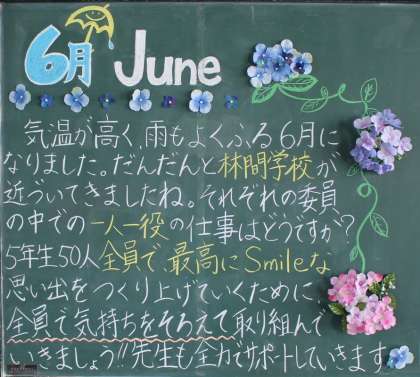 6月 June
気温が高く、雨もよくふる6月に
なりました。だんだんと林間学校が
近づいてきましたね。それぞれの委員
の中での一人一役の仕事はどうですか?
5年生50人全員で、最高にSmileな
思い出をつくり上げていくために
全員で気持ちをそろえて取り組んで
いきましょう!!先生も全力でサポートしていきます。